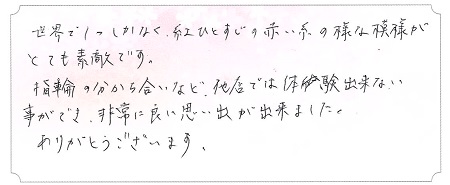 世界で1つしかなく、紅ひとすじの赤い糸の様な模様が
とても素敵です。
指輪の分かち合いなど、他店では体験出来ない
事ができ、非常に良い思い出が出来ました。
ありがとうございます。